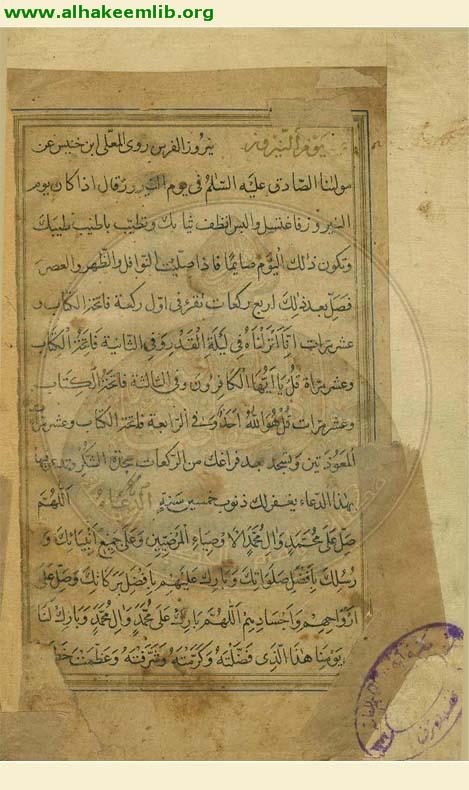 www.alhakeemlib.org
يوم النيروز نيروز الفرس روى المعلى ابن خنيس عن
مولٰنا الصّادق عليه السّلم فى يوم النيروز قال اذا كان يوم
النيروز فاغتسل والبس انظف ثيابك وتطيّب باطيب طيبك
وتكون ذلك اليوم صايمًا فاذا صلّيت النوافل والظّهر والعصر
فصلّ بعد ذلك اربع ركعات تقرء فى اوّل ركعة فاتحة الكتاب و
عشر مرّات انّا انزلناه فى ليلة القدر وفى الثانية فاتحة الكتاب
وعشر مرّاة قل يا ايّها الكافرون وفى الثالثة فاتحة الكتاب
وعشر مرّات قل هو الله احد وفى الرّابعة فاتحة الكتاب وعشر مرّات
المعوّذتين وتسجد بعد فراغك من الركعات سجدة الشّكر وتدعو فيها
بهذا الدعاء يغفر لك ذنوب خمسين سنة الدعاء اللّهمّ
صلّ على محمّد وال محمّد الاوصياء المرضيّين وعلى جميع انبيائك و
رسلك بافضل صلواتك وبارك عليهم بافضل بركاتك وصلّ على
ارواحهم واجسادهم اللّهمّ بارك على محمّد وال محمّد وبارك لنا
يومنا هذا الّذى فضّلته وكرّمته وشرّفته وعظّمت خطره